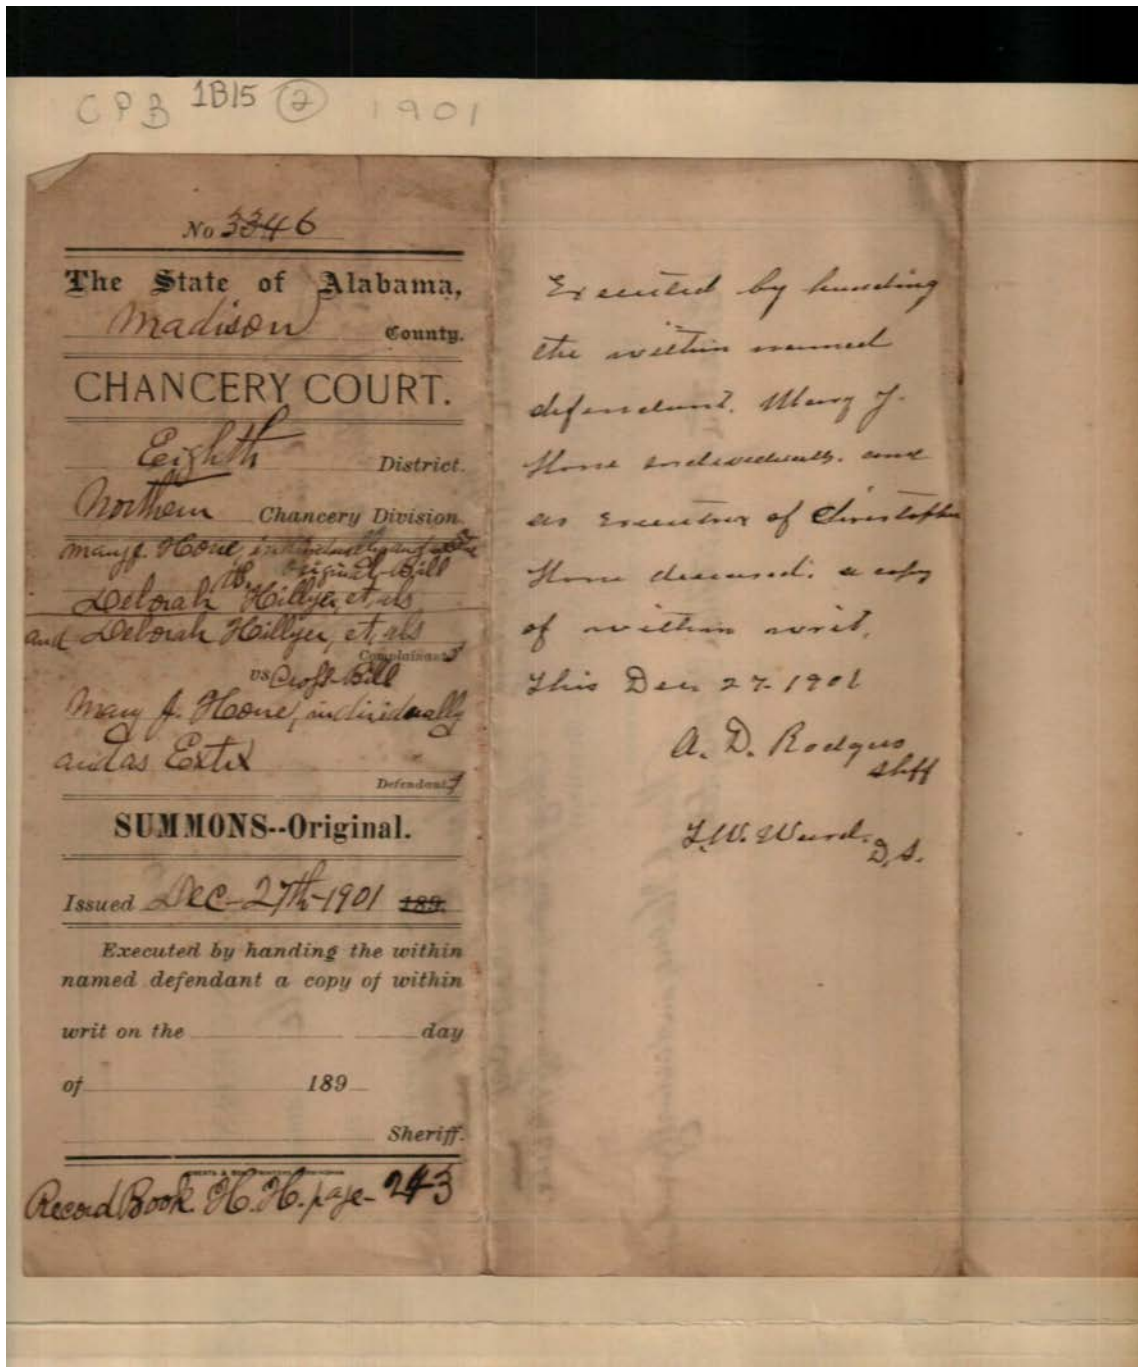 CPB 1B15 2 1901
No 3346
The State of Alabama,
Madison County.
CHANCERY COURT.
Eighth District.
Northern Chancery Division.
Mary J. Hone, individually and
vs, Original Bill
Deborah Hillyer, et, als
and Deborah Hillyer, et, als
Complainants
vs Cross-Bill
Mary J. Hone, individually
and as Extrx
Defendant
SUMMONS--Original.
Issued Dec-27th-1901 189
Executed by handing the within
named defendant a copy of within
writ on the day
of 189
Sheriff.
Record Book. H.H. page- 243
Executed by handing
the within named
defendant. Mary J.
Hone individually. and
as executrix of Christopher
Hone deceased. a copy
of within writ.
This Dec 27-1901
A. D. Rodgers
Shff
D.S.